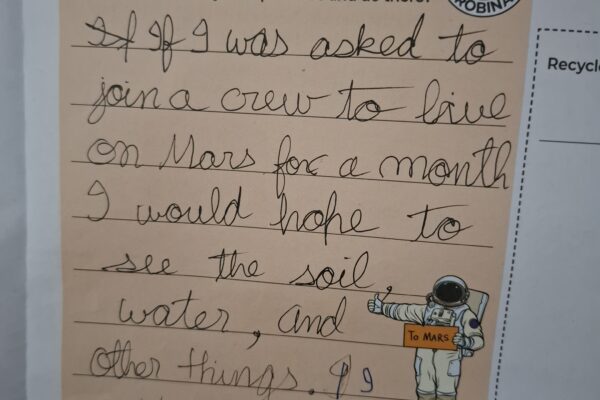 ROBINA
If If I was asked to
join a crew to live
on Mars for a month
I would hope to
see the soil,
water, and
other things. I I
TO MARS
Recycle